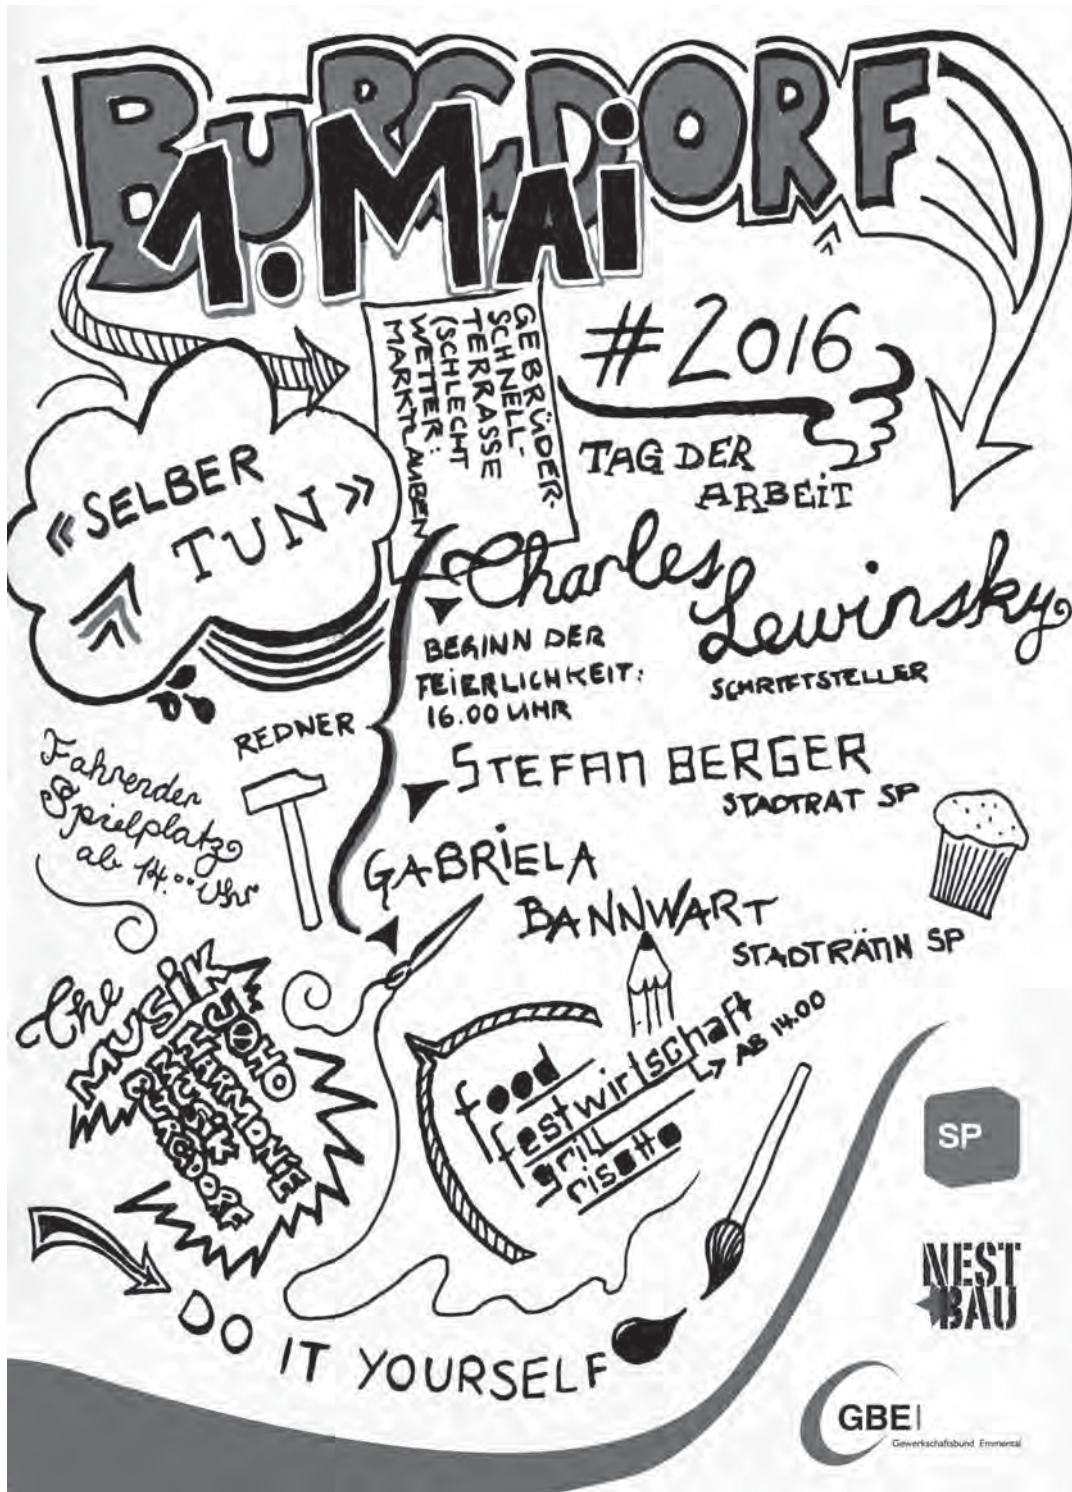 BURGDORF
1. MAI
GEBRÜDER-
SCHNELL-
TERRASSE
(SCHLECHT
WETTER:
MARKTLAUBEN
#2016
TAG DER
ARBEIT
«SELBER
TUN»
Charles
Lewinsky
SCHRIFTSTELLER
BEGINN DER
FEIERLICHKEIT:
16.00 UHR
REDNER
STEFAN BERGER
STADTRAT SP
Fahrender
Spielplatz
ab 14.00 Uhr
GABRIELA
BANNWART
STADTRÄTIN SP
The
MUSIK
JOHO
HARMONIE
MUSIK
BURGDORF
food
festwirtschaft
AB 14.00
grill
risotto
DO IT YOURSELF
SP
NEST
BAU
GBE
Gewerkschaftsbund Emmental